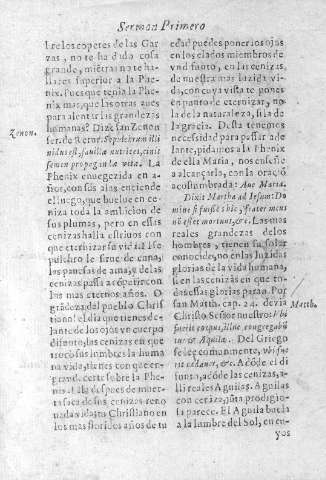 Sermon Primero
bre los copetes de las Gar
zas, no te ha dado cosa
grande, miētras no te ha
llares superior a la Phe
nix. Pues que tenia la Phe
nix mas, que las otras aues
para alentar las grandezas
humanas? Dize san Zenon
Zenon.
ser. de Resur. Sepulchrum illi
nidus est, fauillæ nutrices, cinis
semen propagandæ vitæ. La
Phenix enuegezida en a-
ños, con sus alas enciende
el fuego, que buelue en ce
niza toda la ambicion de
sus plumas, pero en essas
cenizas halla estriuos con
que eternizar su vida. El se
pulchro le sirue de cuna,
las pauesas de ama, e de las
cenizas passa a competir con
las mas eternos años. O
grādeza del pueblo Christi
ano! el dia que tienes de-
lante de los ojos vn cuerpo
difunto, las cenizas en que
trocò sus hōbres la huma
na vida, tienes con que en
grandecerte sobre la Phe-
nix. Ella despues de muer-
ta saca de sus cenizas reno
uada vida: tu Christiano en
los mas floridos años de tu
edad puedes poner los ojos
en los elados miembros de
vn difunto, en las cenizas,
de nuestra mas luzida vi-
da, con cuya vista te pones
en punto de eternizar, no
la de la naturaleza, si la de
la gracia. Desta tenemos
necessidad para passar ade
lante, pidamos a la Phenix
de ella Maria, nos enseñe
a alcançarla, con la oracion
acostumbrada: Aue Maria.
Dixit Martha ad Iesum: Do
mine si fuisses hic, frater meus
nō esset mortuus, &c. Las mas
reales grandezas de los
hombres, tienen su solar
conocido, no en las luzidas
glorias de la vida humana,
si en las cenizas en que to-
das essas glorias paran. Por
san Matth. cap. 24. dezia
Matth.
Christo Señor nuestro: Vbi
fuerit corpus, illuc congregabū
tur & Aquilæ. Del Griego
se lee comunmente, vbi fue
rit cadauer, &c. Adōde el di
funto, adōde las cenizas, a-
lli reales Aguilas. Aguilas
con ceniza, junta prodigio-
sa parece. El Aguila buela
a la lumbre del Sol, en cu-
yos